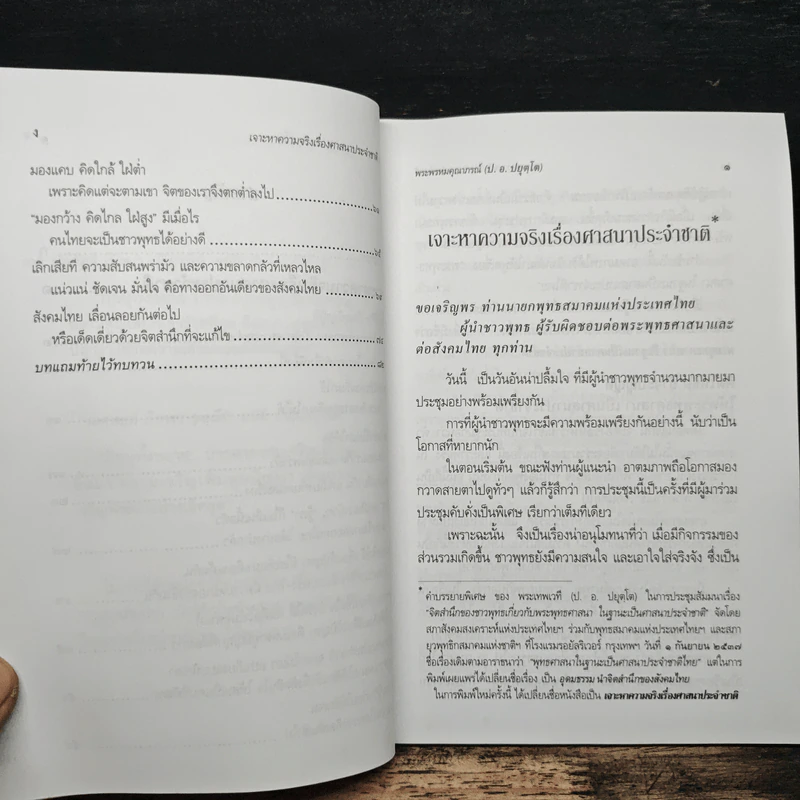 ง
เจาะหาความจริงเรื่องศาสนาประจำชาติ
มองแคบ คิดใกล้ ใฝ่ต่ำ
เพราะคิดแต่จะตามเขา จิตของเราจึงตกต่ำลงไป
"มองกว้าง คิดไกล ใฝ่สูง" มีเมื่อไร
คนไทยจะเป็นชาวพุทธได้อย่างดี
เลิกเสียที ความสับสนพร่ามัว และความขลาดกลัวที่เหลวไหล
แน่วแน่ ชัดเจน มั่นใจ คือทางออกอันเดียวของสังคมไทย
สังคมไทย เลื่อนลอยกันต่อไป
หรือเด็ดเดี่ยวด้วยจิตสำนึกที่จะแก้ไข
บทแถมท้ายไว้ทบทวน
พระพรหมคุณาภรณ์ (ป. อ. ปยุตฺโต)
๑
เจาะหาความจริงเรื่องศาสนาประจำชาติ*
ขอเจริญพร ท่านนายกพุทธสมาคมแห่งประเทศไทย
ผู้นำชาวพุทธ ผู้รับผิดชอบต่อพระพุทธศาสนาและ
ต่อสังคมไทย ทุกท่าน
วันนี้ เป็นวันอันน่าปลื้มใจ ที่มีผู้นำชาวพุทธจำนวนมากมายมา
ประชุมอย่างพร้อมเพรียงกัน
การที่ผู้นำชาวพุทธจะมีความพร้อมเพรียงกันอย่างนี้ นับว่าเป็น
โอกาสที่หายากนัก
ในตอนเริ่มต้น ขณะฟังท่านผู้แนะนำ อาตมภาพถือโอกาสมอง
กวาดสายตาไปดูทั่วๆ แล้วก็รู้สึกว่า การประชุมนี้เป็นครั้งที่มีผู้มาร่วม
ประชุมคับคั่งเป็นพิเศษ เรียกว่าเต็มทีเดียว
เพราะฉะนั้น จึงเป็นเรื่องน่าอนุโมทนาที่ว่า เมื่อมีกิจกรรมของ
ส่วนรวมเกิดขึ้น ชาวพุทธยังมีความสนใจ และเอาใจใส่จริงจัง ซึ่งเป็น
* คำบรรยายพิเศษ ของ พระเทพเวที (ป. อ. ปยุตฺโต) ในการประชุมสัมมนาเรื่อง
"จิตสำนึกของชาวพุทธเกี่ยวกับพระพุทธศาสนา ในฐานะเป็นศาสนาประจำชาติ" จัดโดย
สภาสังคมสงเคราะห์แห่งประเทศไทยฯ ร่วมกับพุทธสมาคมแห่งประเทศไทยฯ และสภา
ยุวพุทธิกสมาคมแห่งชาติฯ ที่โรงแรมรอยัลริเวอร์ กรุงเทพฯ วันที่ ๑ กันยายน ๒๕๓๗
ชื่อเรื่องเดิมตามอาราธนาว่า "พุทธศาสนาในฐานะเป็นศาสนาประจำชาติไทย" แต่ในการ
พิมพ์เผยแพร่ได้เปลี่ยนชื่อเรื่อง เป็น อุดมธรรม นำจิตสำนึกของสังคมไทย
ในการพิมพ์ใหม่ครั้งนี้ ได้เปลี่ยนชื่อหนังสือเป็น เจาะหาความจริงเรื่องศาสนาประจำชาติ